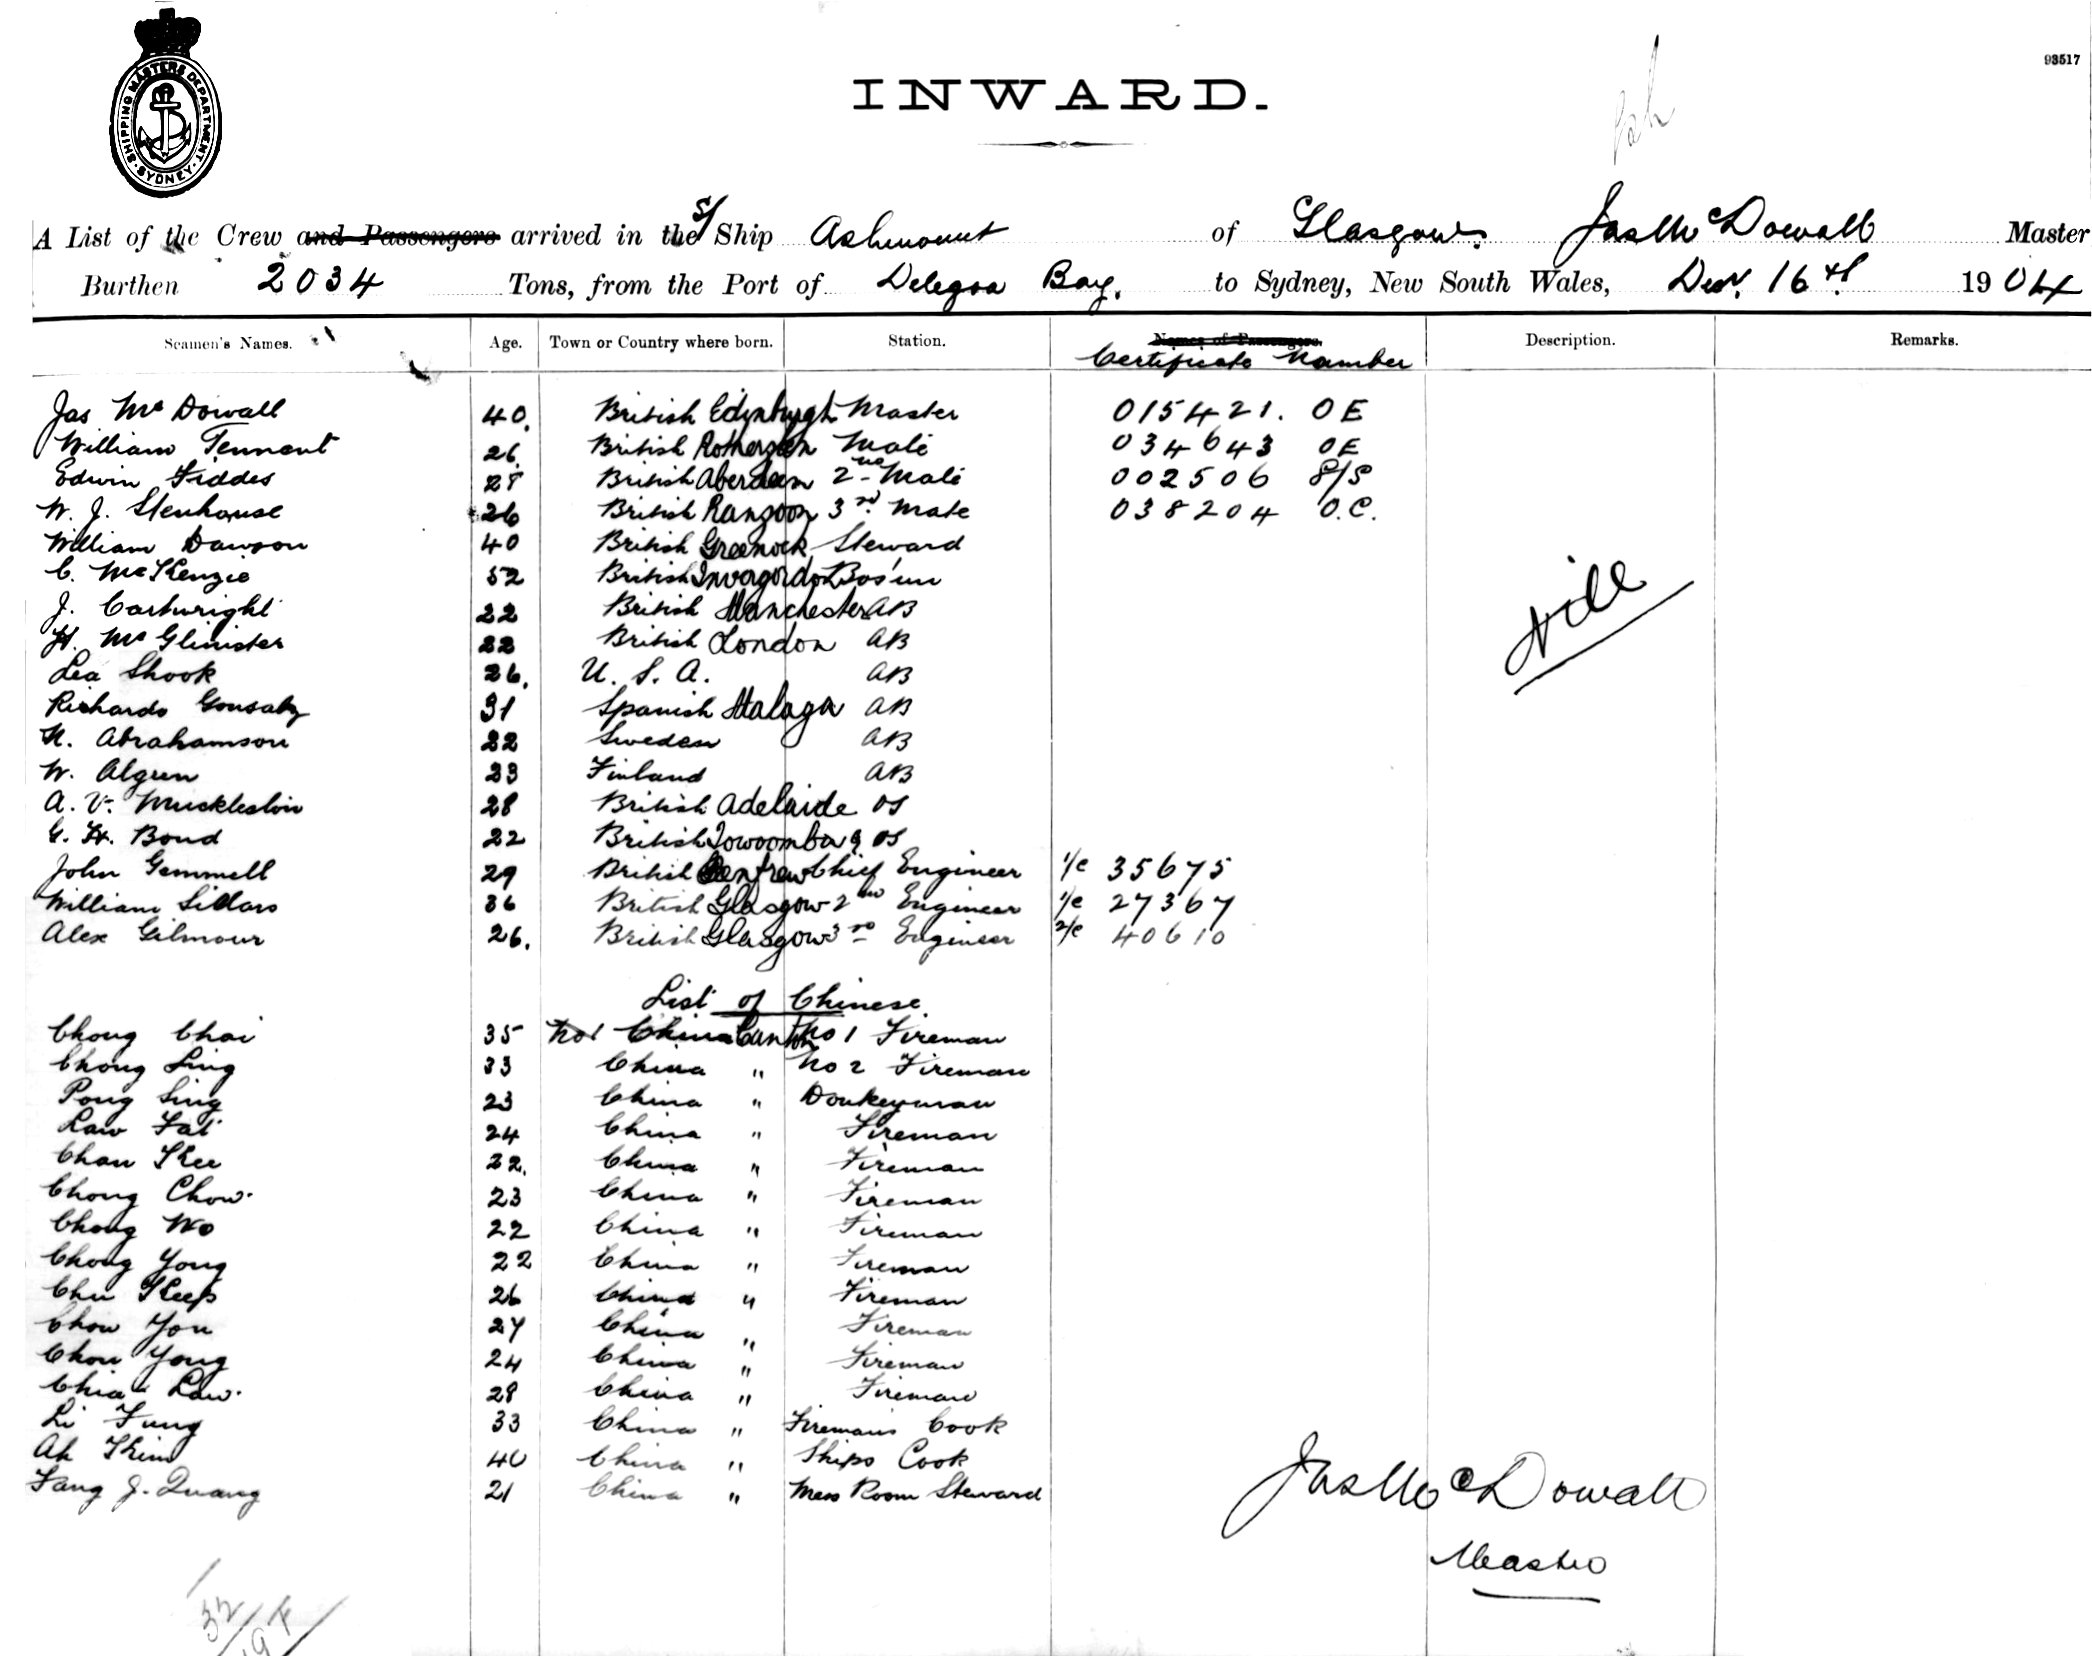 93517
SHIPPING MASTERS DEPARTMENT · SYDNEY ·
INWARD.
A List of the Crew and Passengers arrived in the S/ Ship Ashmount of Glasgow. Jas Mc Dowall Master
Burthen 2034 Tons, from the Port of Delegoa Bay. to Sydney, New South Wales, Decr. 16th 1904
Seamen's Names. Age. Town or Country where born. Station. Names of Passengers. Description. Remarks.
Certificate Number
Jas Mc Dowall 40. British Edinburgh Master 015421. OE
William Tennent 26. British Mate 034643 OE
Edwin Fiddes 28 British Aberdeen 2nd Mate 002506 S/S
W. J. Stenhouse 26 British Rangoon 3rd Mate 038204 O.C.
William Dawson 40 British Greenock Steward
C. McKenzie 52 British Invergordon Bos'un
J. Cartwright 22 British Manchester AB
H. Mc Glinister 22 British London AB
Lea Shook 26. U. S. A. AB
Richardo Gonsalz 31 Spanish Malaga AB
N. Abrahamson 22 Sweden AB
W. Algren 23 Finland AB
A. V. Muckleston 28 British Adelaide OS
G. H. Bond 22 British Towoomba OS
John Gemmell 29 British Renfrew Chief Engineer 1/c 35675
William Sillars 36 British Glasgow 2nd Engineer 1/c 27367
Alex Gilmour 26. British Glasgow 3rd Engineer 2/c 40610
Nill
List of Chinese
Chong Chai 35 No 1 China Canton No 1 Fireman
Chong Ling 33 China " No 2 Fireman
Pong Sing 23 China " Donkeyman
Law Fat 24 China " Fireman
Chan Kee 22. China " Fireman
Chong Chow. 23 China " Fireman
Chong Wo 22 China " Fireman
Chong Yong 22 China " Fireman
Chu Keep 26 China " Fireman
Chow You 27 China " Fireman
Chou Yong 24 China " Fireman
Chia Law. 28 China " Fireman
Li Fung 33 China " Firemans Cook
Ah Kim 40 China " Ships Cook
Fang J. Quang 21 China " Mess Room Steward
Jas Mc Dowall
Master
32
19 F